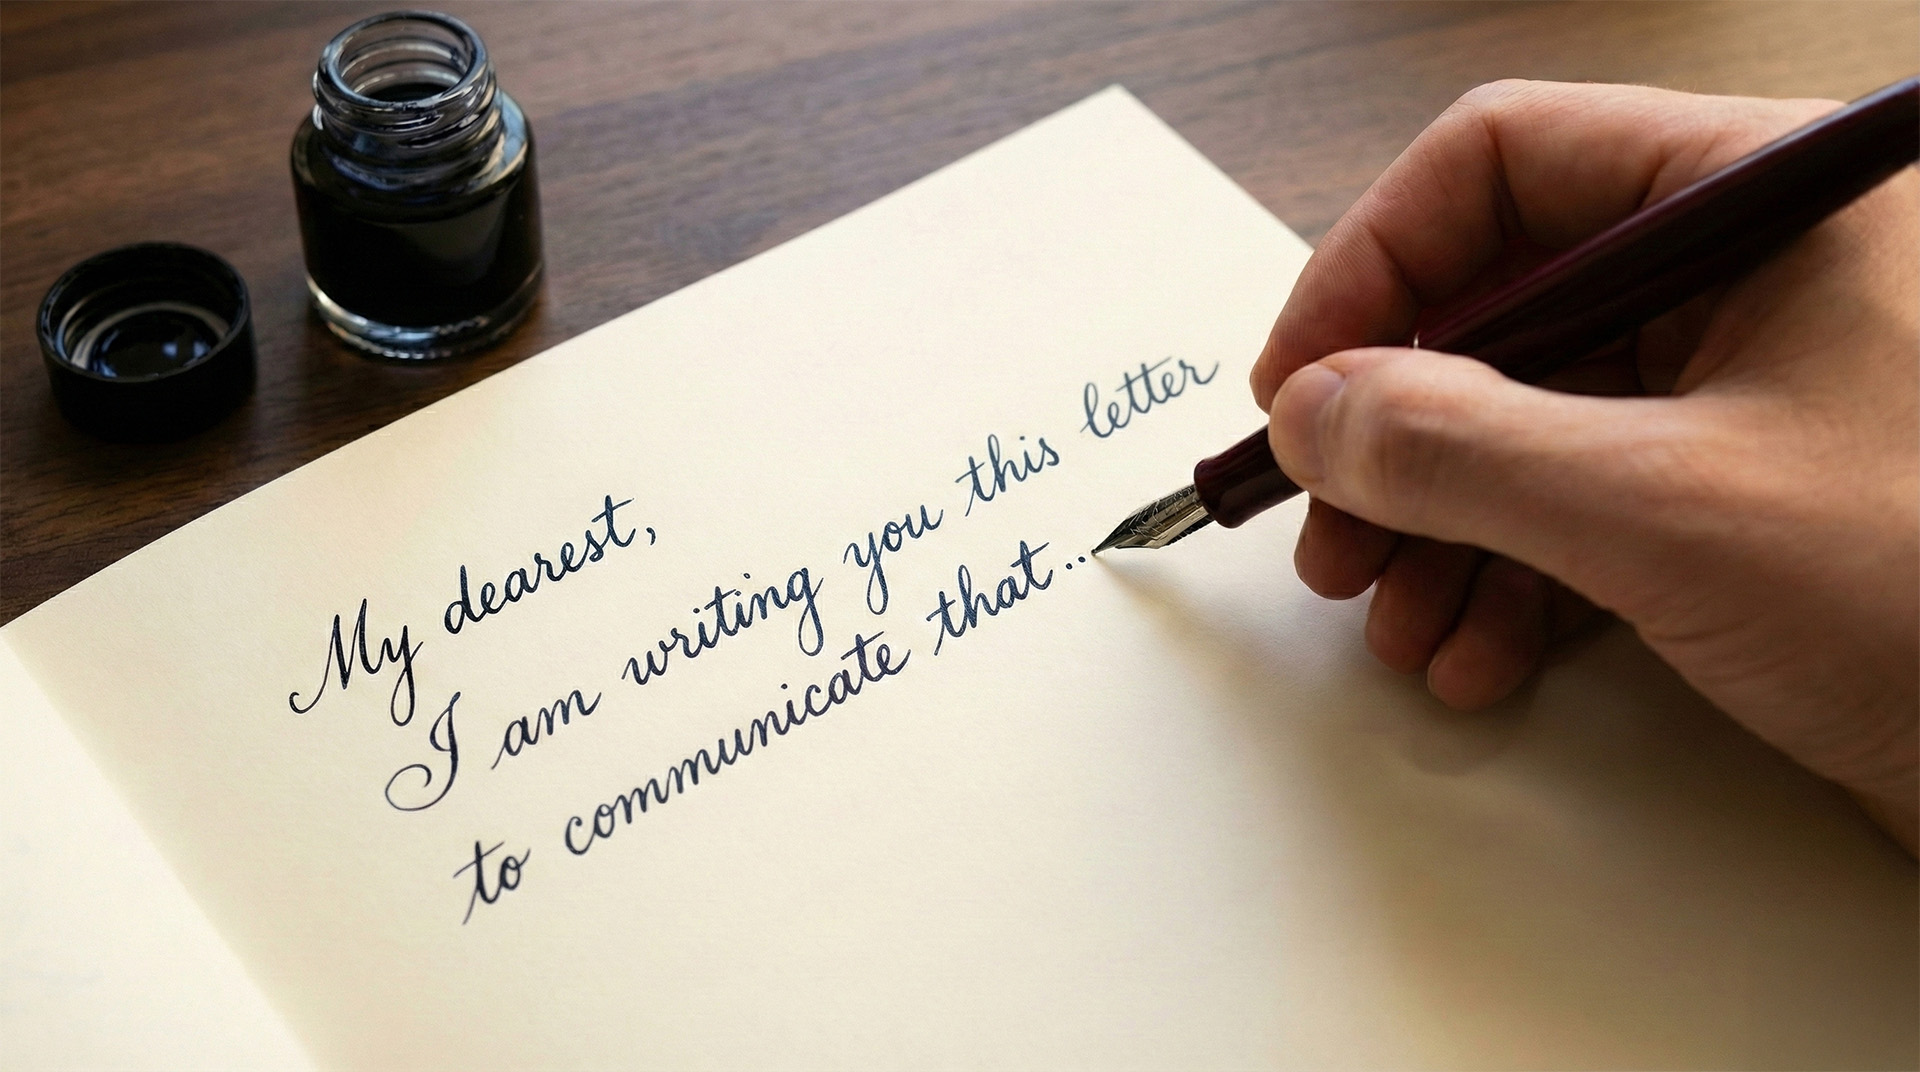 My dearest,
I am writing you this letter
to communicate that...